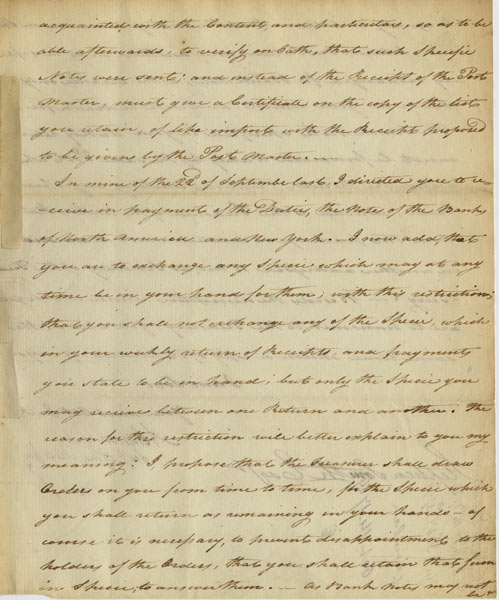 acquainted with the Content, and particulars, so as to be
able afterwards, to verify on Oath, that such Specific
Notes were sent; and instead of the Receipt of the Post
Master, must give a Certificate on the copy of the list
you retain, of like import with the Receipt proposed
to be given by the Post Master. —
In mine of the 22d of September last, I directed you to re-
-ceive in payment of the Duties, the Notes of the Banks
of North America and New York. — I now add, that
you are to exchange any Specie which may at any
time be in your hand for them; with this restriction;
that you shall not exchange any of the Specie, which
in your weekly return of Receipts, and payments
you state to be in hand; but only the Specie you
may receive between one Return and another. The
reason for this restriction will better explain to you my
meaning: I propose that the Treasurer shall draw
Orders on you from time to time, for the Specie which
you shall return as remaining in your hands — of
course it is necessary, to prevent disappointment to the
holders of the Orders, that you shall retain that sum
in Specie, to answer them. — As Bank Notes may not
be